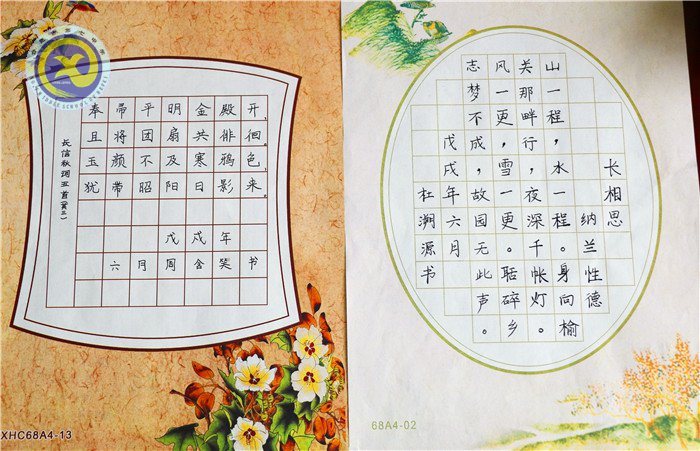 长信秋词五首(其三)
奉帚平明金殿开,
且将团扇共徘徊。
玉颜不及寒鸦色
犹带昭阳日影来。
戊戌年
六月周含笑书
XHC68A4-13
长相思
纳兰性德
山一程，水一程。身向榆
关那畔行，夜深千帐灯。
风一更，雪一更。聒碎乡
志梦不成，故园无此声。
戊戌年六月
杜溯源书
68A4-02